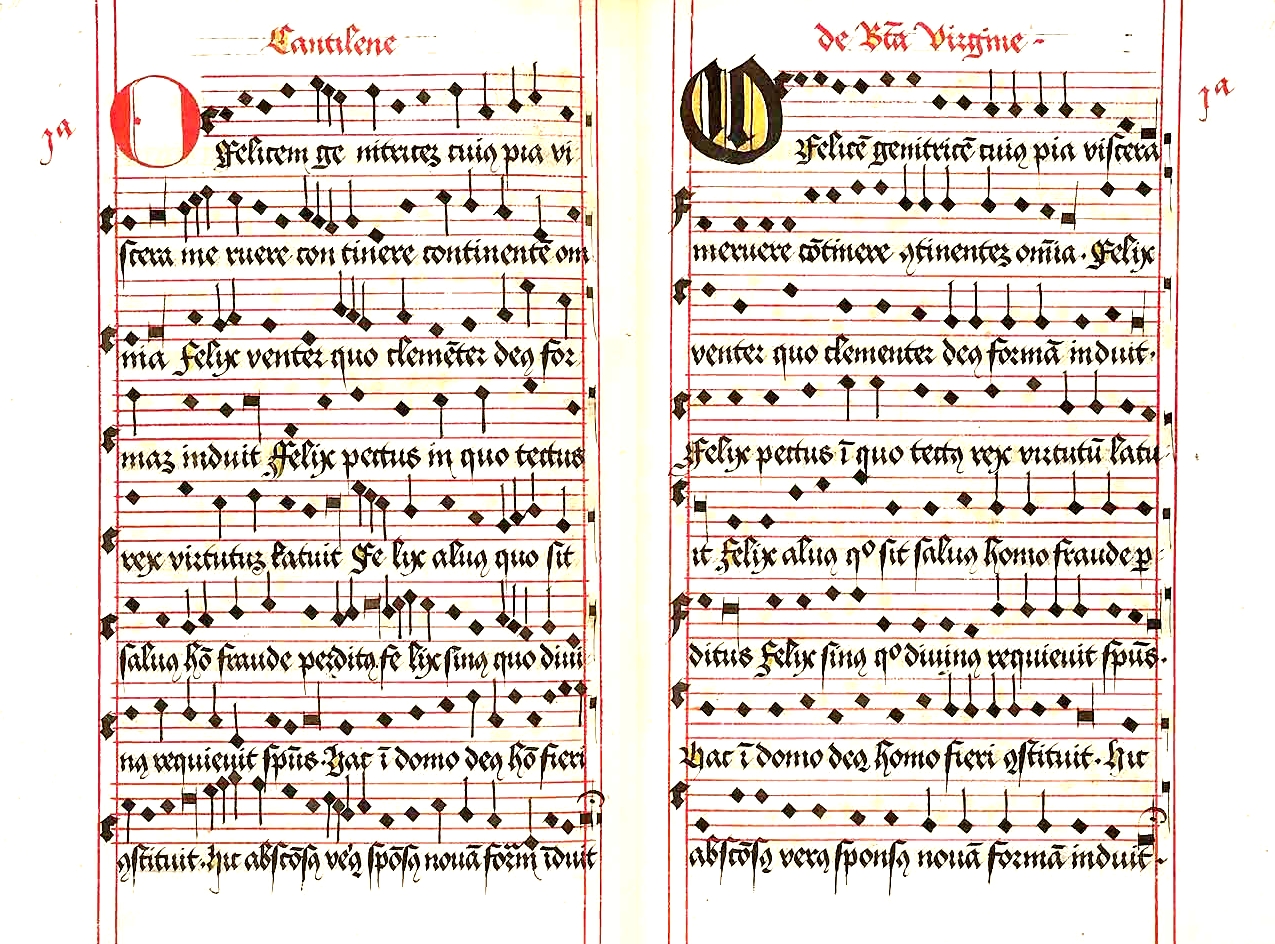 Cantilene
1a
O Felicem ge nitricez cuiꝯ pia vi
scera me ruere con tinere continentē om
nia Felix venter quo clemēter deꝯ for
maz induit Felix pectus in quo tectus
rex virtutuz latuit Fe lix aluꝯ quo sit
saluꝯ hō fraude perditꝯ fe lix sinꝯ quo diui
nꝯ requieuit spūs · Hac ī domo deꝯ hō fieri
ꝯstituit · Hic abscōsꝯ veꝯ spōsꝯ nouā form̄ īduit
de Btā Virgine
1a
O Felicē genitricē cuiꝯ pia viscera
meruere cōtinere ꝯtinentez om̄ia · Felix
venter quo clementer deꝯ formā induit ·
Felix pectus ī quo tectꝯ rex virtutū latu
it Felix aluꝯ qº sit saluꝯ homo fraude ꝑ
ditus Felix sinꝯ qº diuinꝯ requieuit spūs ·
Hac ī domo deꝯ homo fieri ꝯstituit · Hic
abscōsꝯ verꝯ sponsꝯ nouā formā induit ·